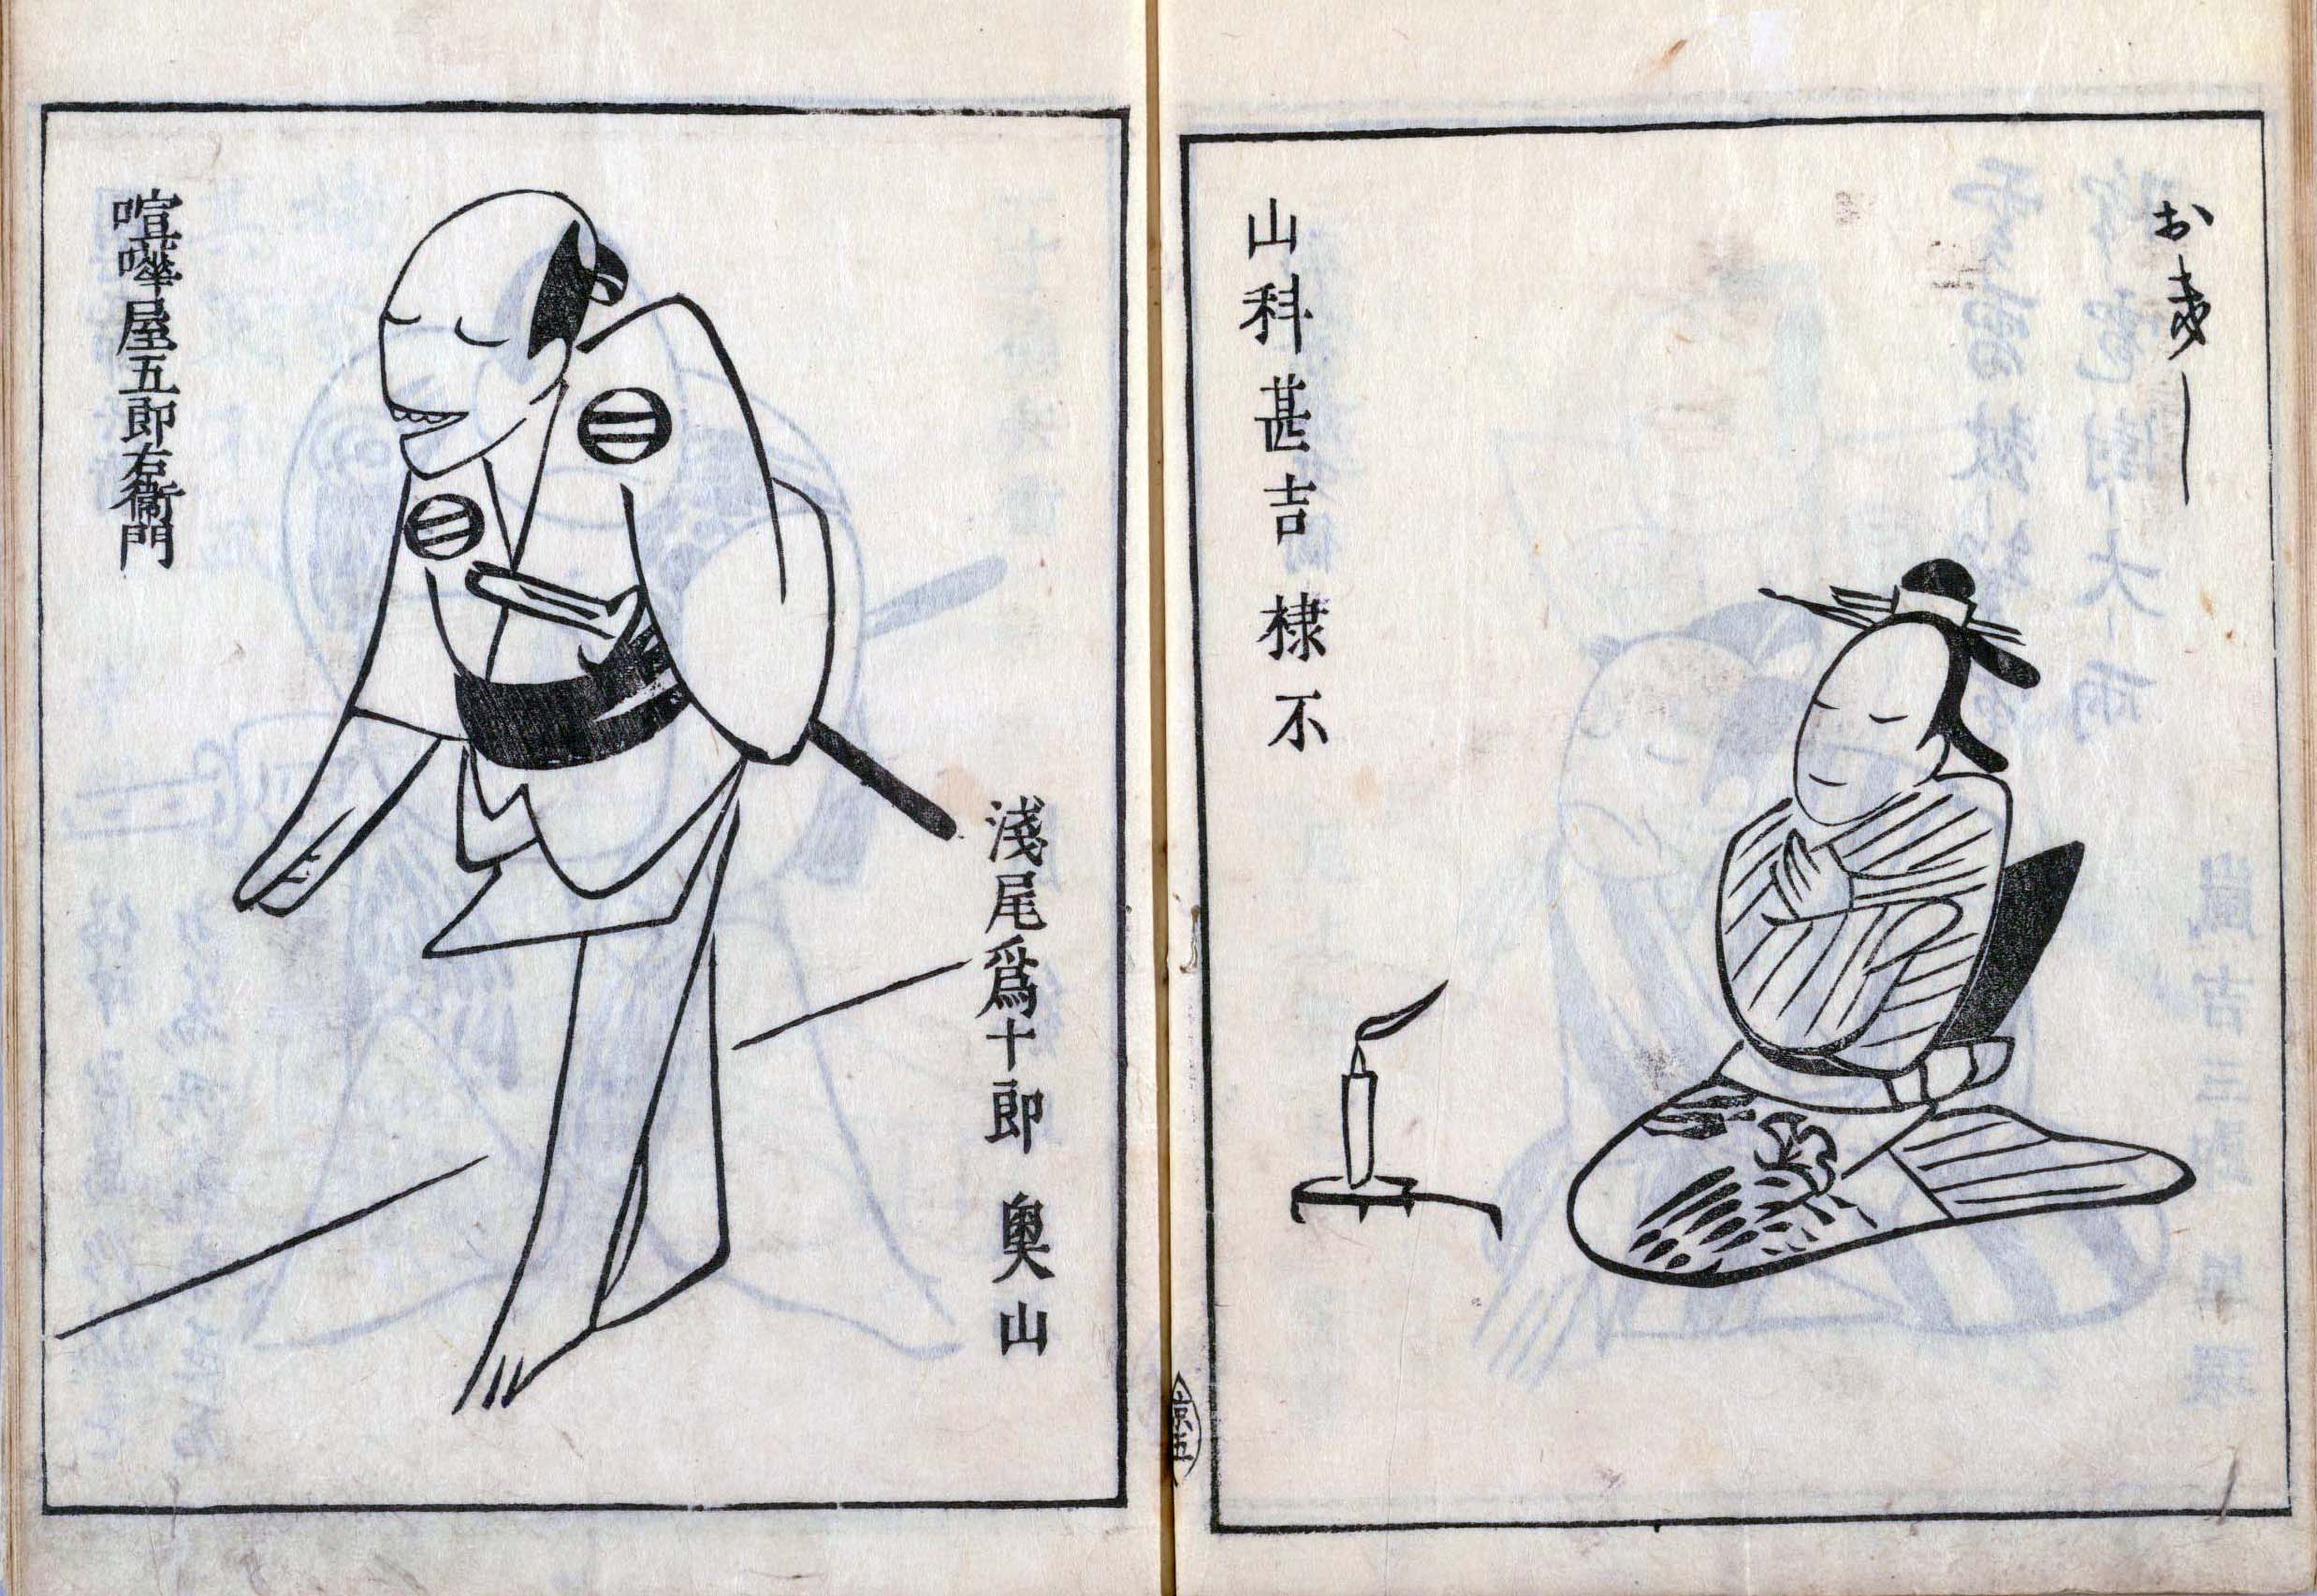 山科甚吉 棣不
淺尾爲十郎 奥山
喧嘩屋五郎右衛門